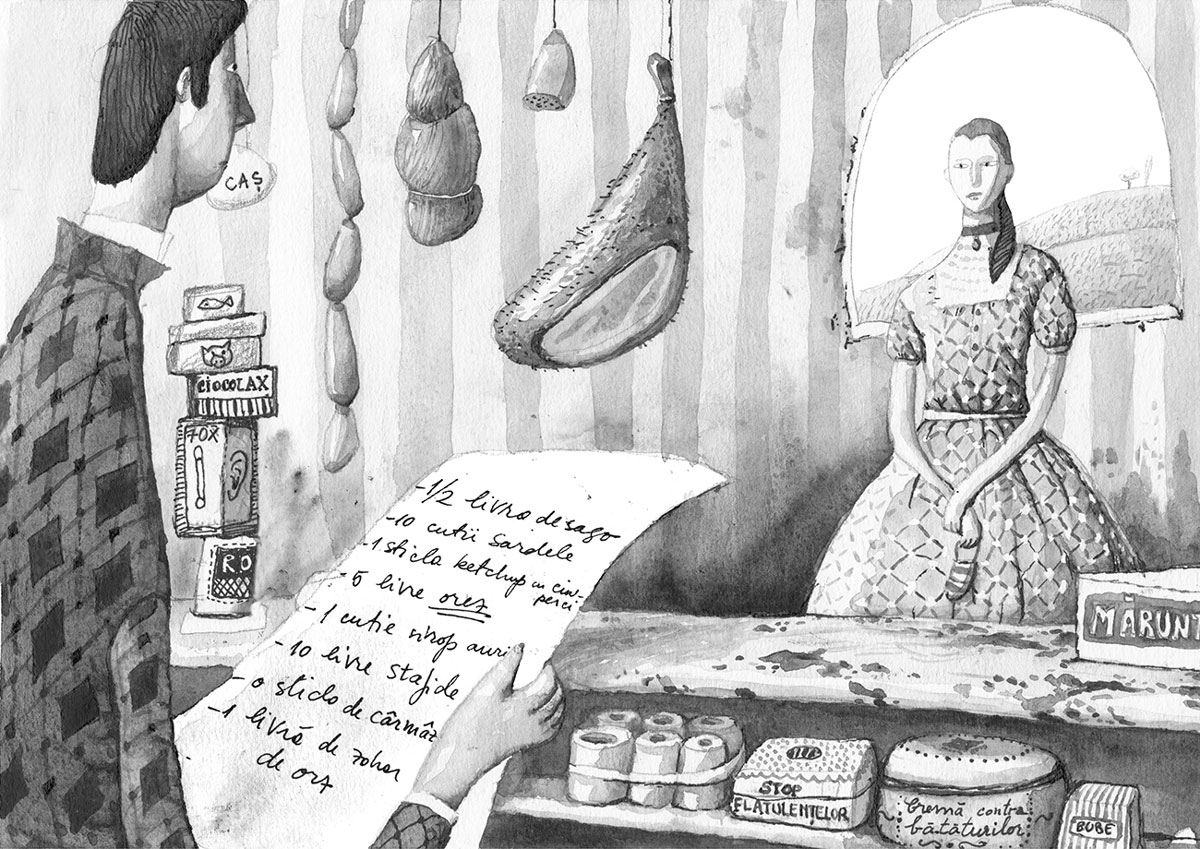 CAȘ
CIOCOLAX
FOX
RO
-1/2 livra de sago
-10 cutii sardele
-1 sticla ketchup cu ciu-
perci
-5 livre orez
-1 cutie sirop auri
-10 livre stafide
-o sticla de cârmâz
-1 livră de zahar
de orz
MĂRUNT
STOP
FLATULENȚELOR
Cremă contra
bătăturilor
BUBE